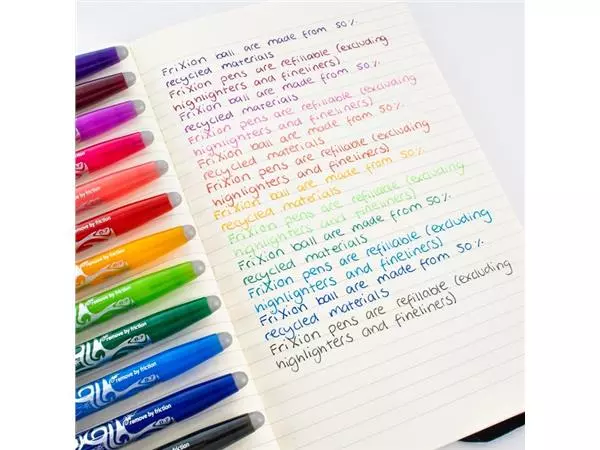 FriXion ball are made from 50%
recycled materials
FriXion pens are refillable (excluding
highlighters and fineliners)
FriXion ball are made from 50%
recycled materials
FriXion pens are refillable (excluding
highlighters and fineliners)
FriXion ball are made from 50%
recycled materials
FriXion pens are refillable (excluding
highlighters and fineliners)
FriXion ball are made from 50%
recycled materials
FriXion pens are refillable (excluding
highlighters and fineliners)
FriXion ball are made from 50%
recycled materials
FriXion pens are refillable (excluding
highlighters and fineliners)
FriXion ball are made from 50%
recycled materials
FriXion pens are refillable (excluding
highlighters and fineliners)
remove by friction
remove by friction
remove by friction
remove by friction
remove by friction
remove by friction
remove by friction
remove by friction